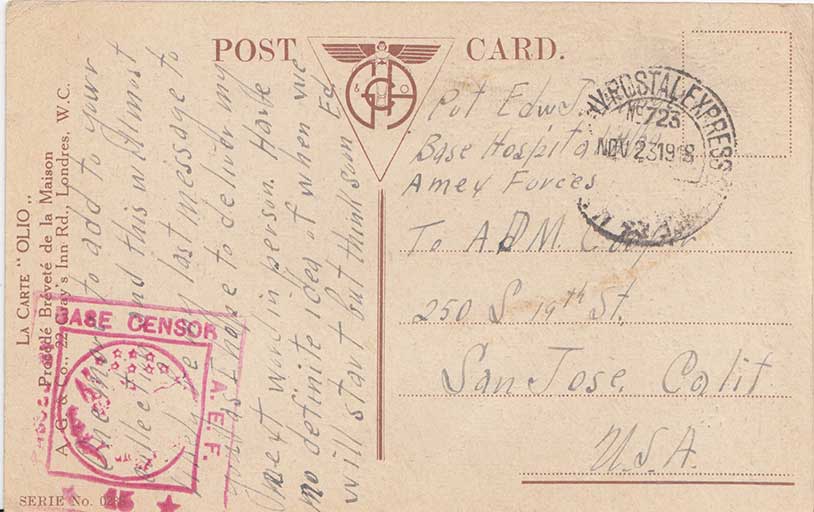 POST CARD.
LA CARTE "OLIO"
Procédé Bréveté de la Maison
A. G. & Co., 22 Gray's Inn Rd., Londres, W.C.
SERIE No.
one more to add to your
collection and this will most
likely be my last message to
you as I hope to deliver my
next word in person. Have
no definite idea of when we
will start but think soon Ed
BASE CENSOR
A. E. F.
Pvt Edw J.
Base Hospital
Amex Forces
To ADM
250 S 19th St.
San Jose, Calif
U.S.A.
POSTAL EXPRESS
No 723
NOV 23 1918